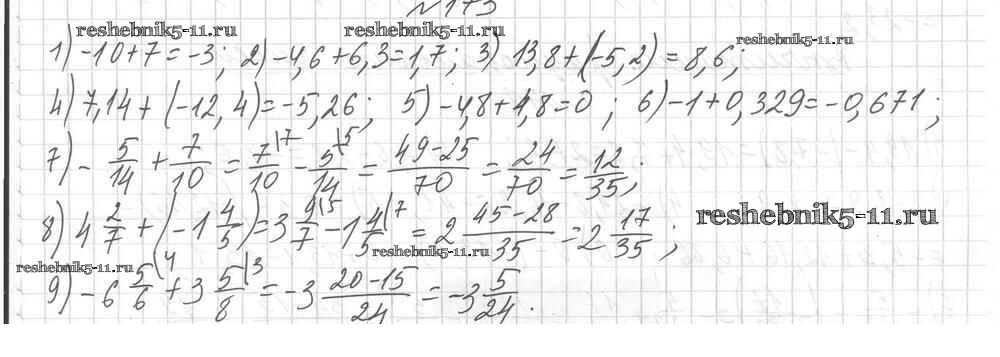 №173
reshebnik5-11.ru reshebnik5-11.ru reshebnik5-11.ru
1) -10+7=-3; 2) -4,6+6,3=1,7; 3) 13,8+(-5,2)=8,6;
4) 7,14+(-12,4)=-5,26; 5) -4,8+4,8=0; 6) -1+0,329=-0,671;
7) -5/14+7/10=7/10\7-5/14\5=(49-25)/70=24/70=12/35;
8) 4 2/7+(-1 4/5)=3 9/7\5-1 4/5\7=2 (45-28)/35=2 17/35;
reshebnik5-11.ru
reshebnik5-11.ru reshebnik5-11.ru
9) -6 5/6\4+3 5/8\3=-3 (20-15)/24=-3 5/24.